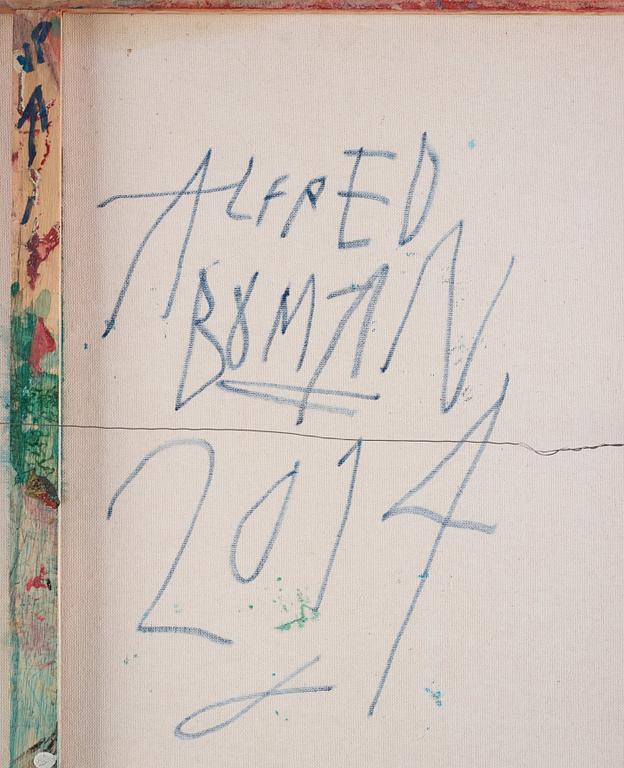 UP
ALFRED
BOMAN
2014